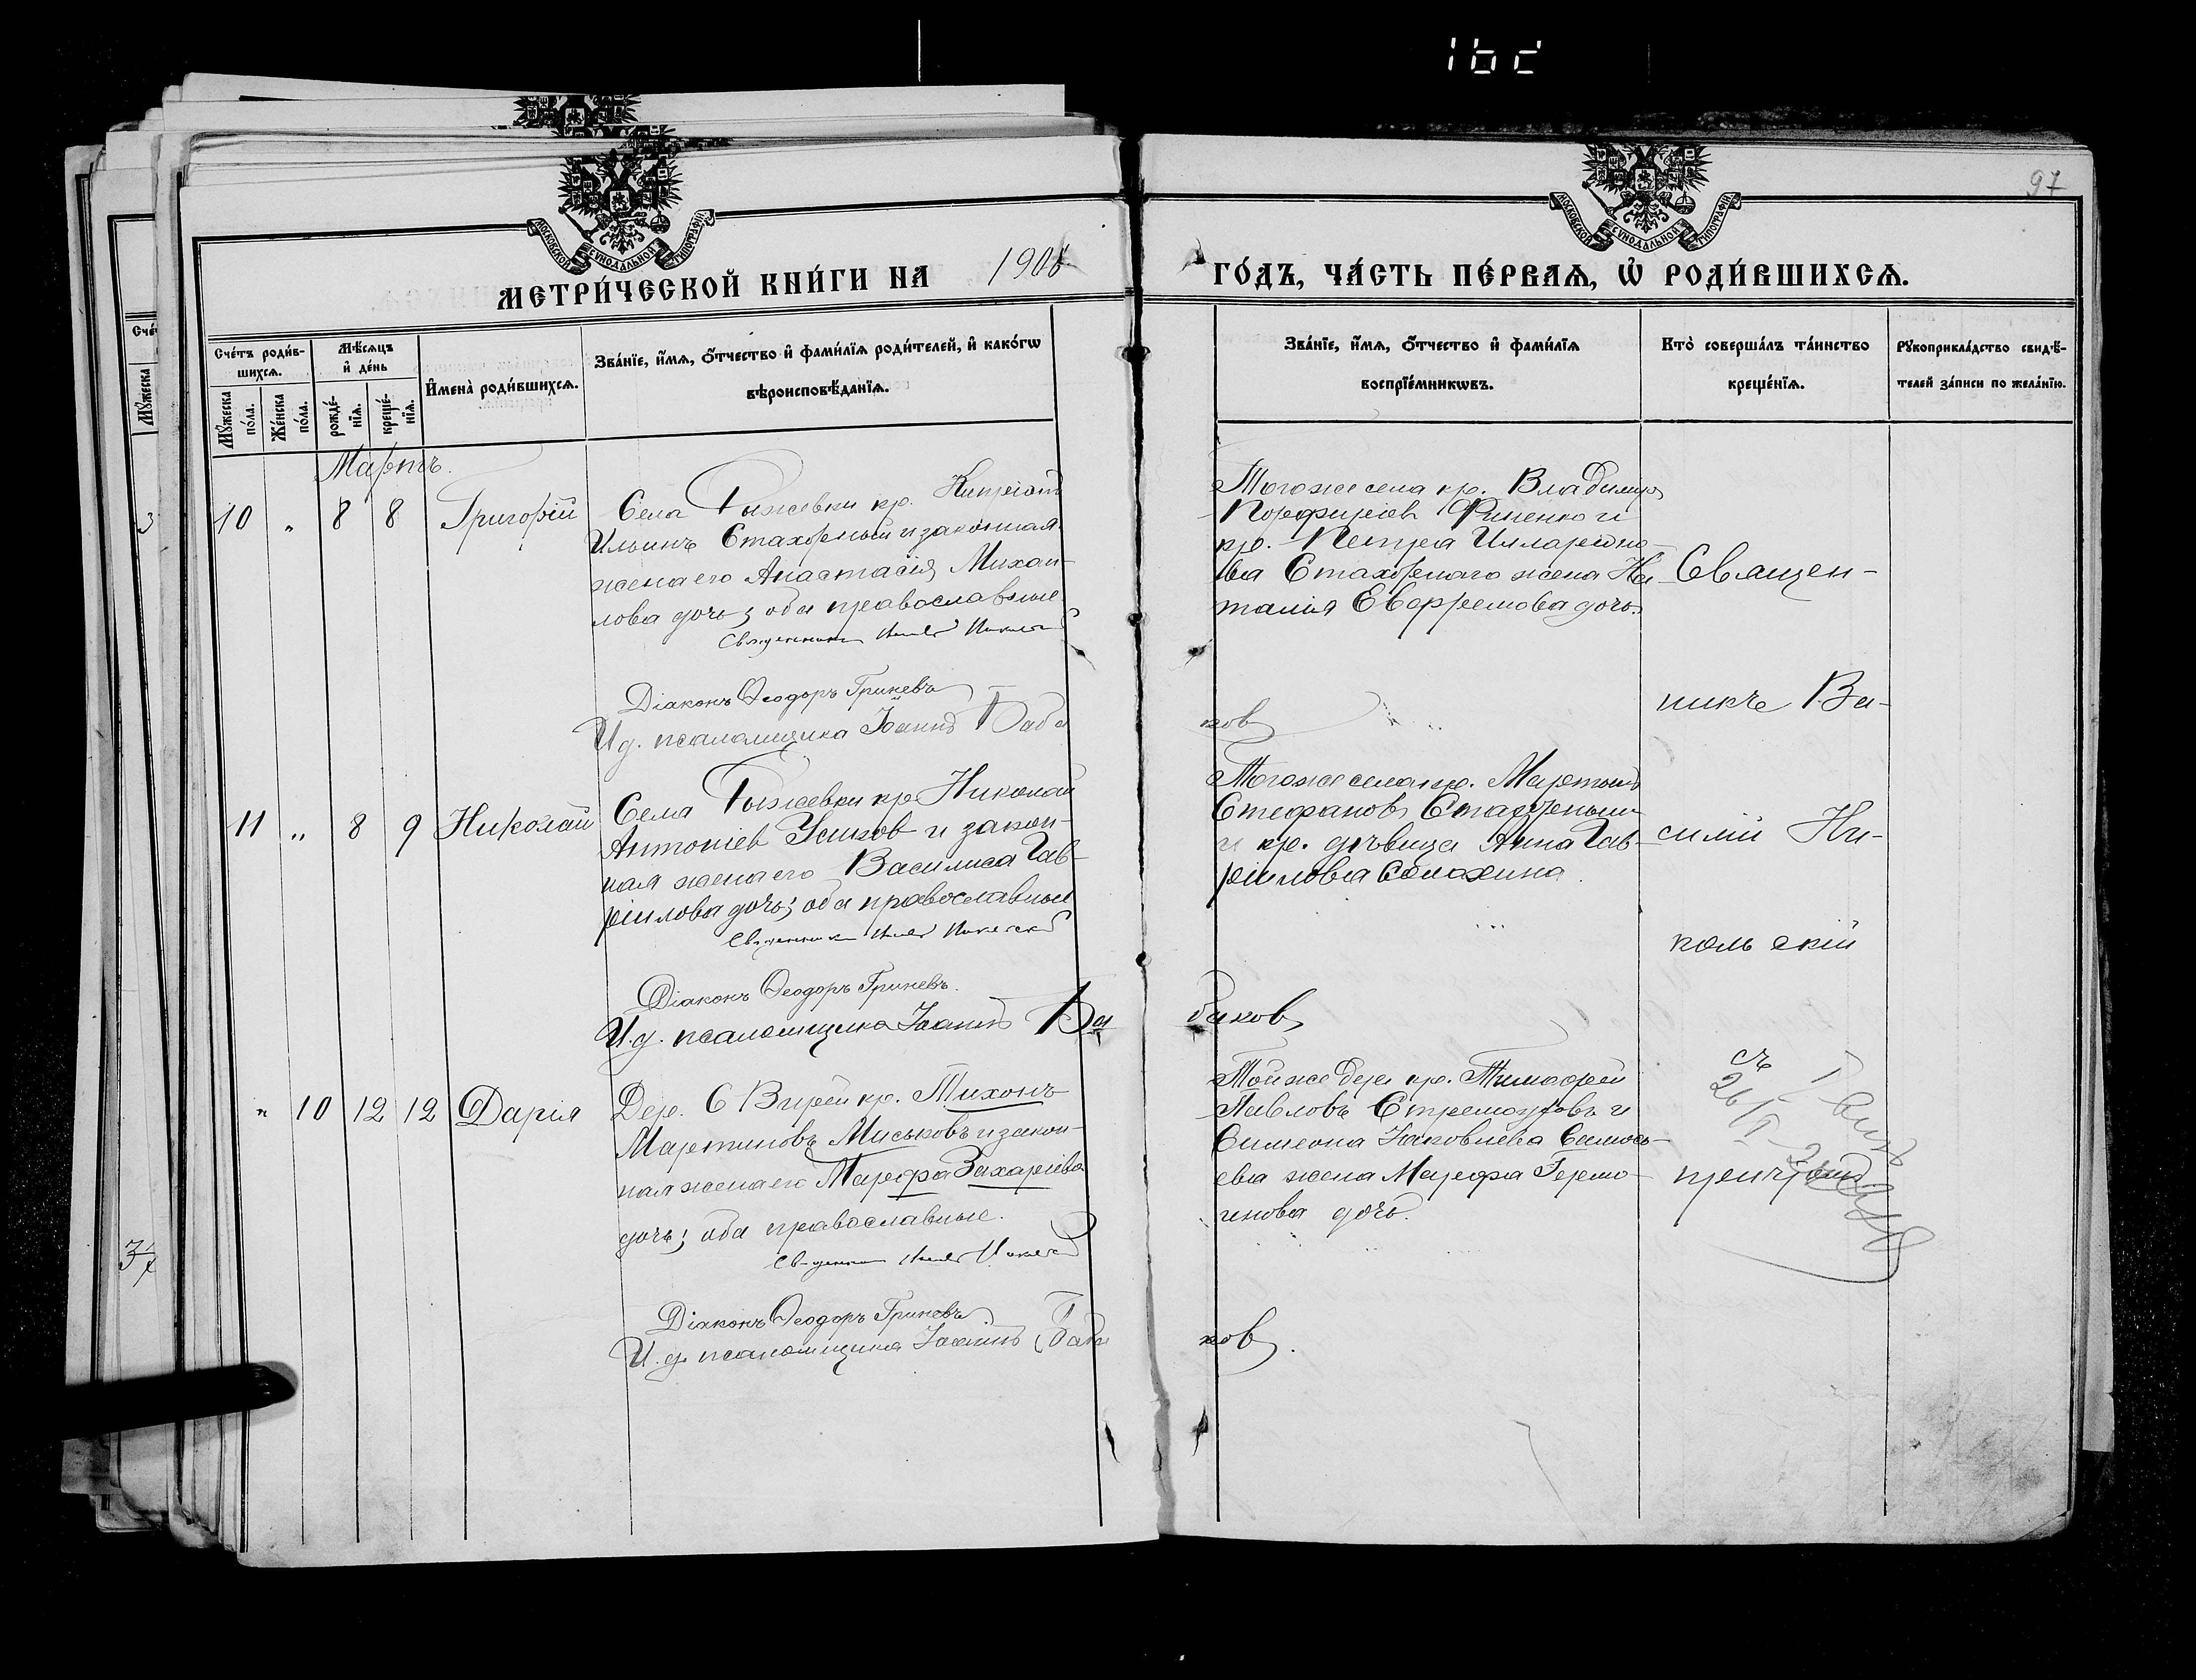 97
МЕТРИ́ЧЕСКОЙ КНИ́ГИ НА 1908
ГО́ДЪ, ЧА́СТЬ ПЕ́РВАѦ, Ѽ РОДИ́ВШИХСѦ.
Сче́тъ роди́в-
шихсѧ.
Мꙋ́жеска
по́ла.
Же́нска
по́ла.
Мѣ́сѧцъ
и҆ де́нь
рожде́-
нїѧ.
креще́-
нїѧ.
И҆мена̀ роди́вшихсѧ.
Зва́нїе, и҆́мѧ, ѻ҆́тчество и҆ фами́лїѧ роди́телей, и҆ како́гѡ
вѣроисповѣ́данїѧ.
Зва́нїе, и҆́мѧ, ѻ҆́тчество и҆ фами́лїѧ
воспрїе́мникѡвъ.
Кто̀ соверша́лъ та́инство
креще́нїѧ.
Рꙋкоприкла́дство свидѣ́-
телей за́писи по жела́нїю.
Мартъ.
10 " 8 8 Григорій
Села Рыжевки кр.
Ильинъ Стахорный и закон­ная
жена его Анастасія Михаи-
лова дочь; оба православные
Священникъ
Діаконъ Ѳеодоръ Гриневъ
И. д. псаломщика Іоаннъ Баба
ков
Тогоже села кр. Владимір
Порфиріев и
кр. Петра Илларіоно-
ва Стахорнаго жена На-
талія Евфремова дочь.
Священ-
никъ Ва-
силій Ни-
кольскій
11 " 8 9 Николай
Села Рыжевки кр. Николай
Антоніев Усиков и закон-
ная жена его Василиса Гав-
ріилова дочь; оба православные
Священникъ
Діаконъ Ѳеодоръ Гриневъ.
И. д. псаломщика Іоаннъ Ба
баков
Тогоже села кр. Мартинъ
Стефанов Стахорный
и кр. дѣвица Анна Гав-
ріилова Солохина.
" 10 12 12 Дарія
Дер. С Вирей кр. Тихонъ
Мартиновъ Миськовъ и закон-
ная жена его Марфа Захаріева
дочь; оба православные.
Діаконъ Ѳеодоръ Гриневъ
И. д. псаломщика Іоаннъ Баба
ков.
Тойже дер кр. Тимофей
Павловъ и
Симеона Іаковлева
ева жена Марфа Гермо-
генова дочь.
съ
причтомъ